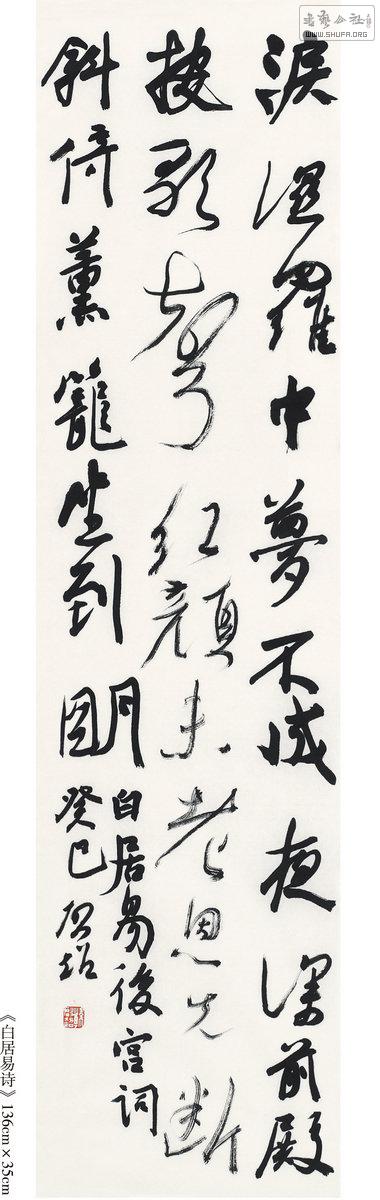 淚濕羅巾夢不成夜深前殿
按歌聲紅顏未老恩先断
斜倚薰籠坐到朙
白居易後宮詞
癸巳
《白居易诗》136cm×35cm
书艺公社
WWW.SHUFA.ORG